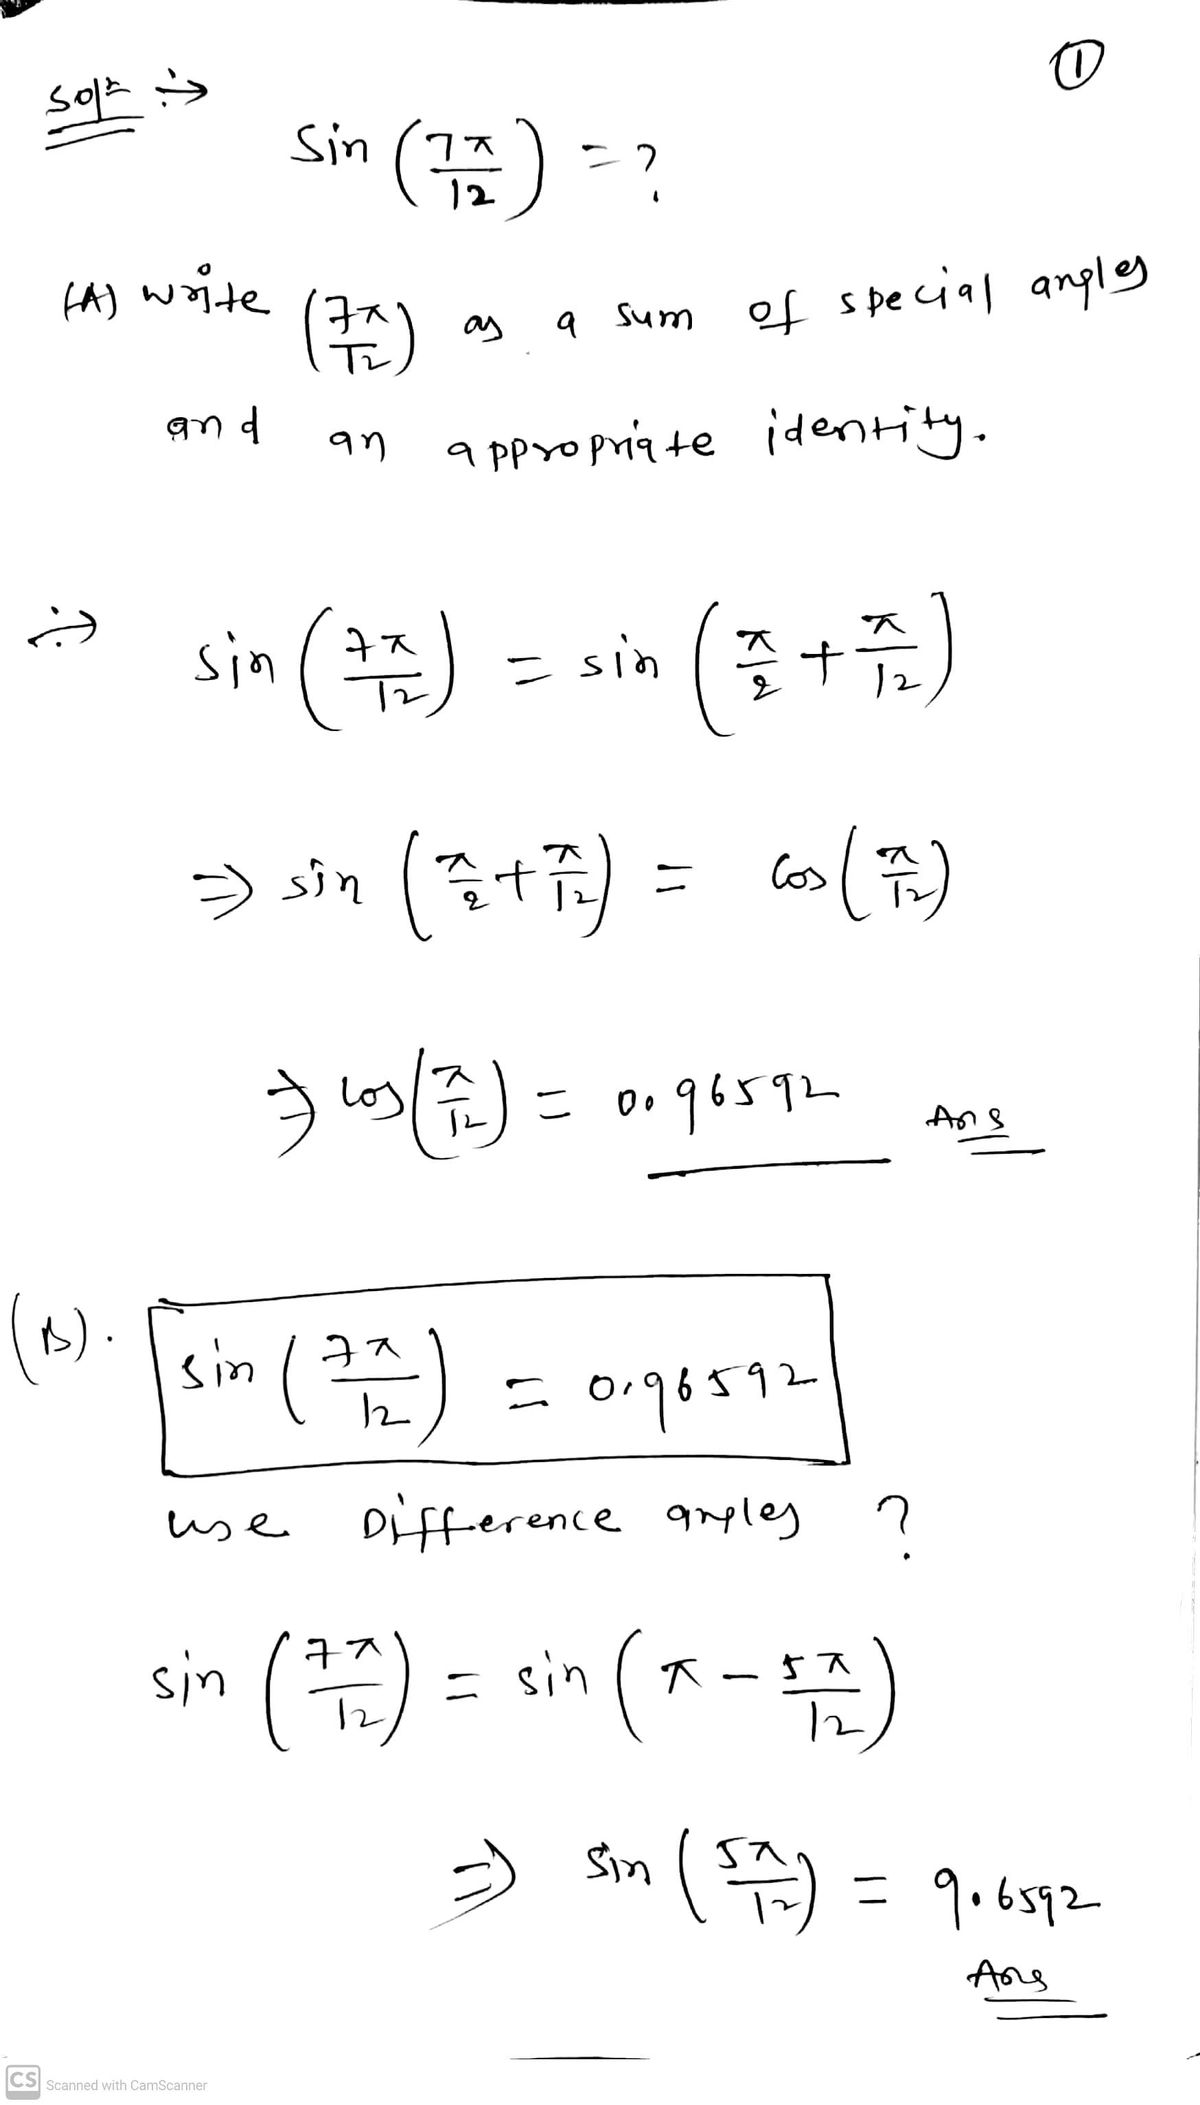 ①
Solⁿ ÷→
Sin (7π/12) = ?
(A) write (7π/12) as a sum of special angles
and an appropriate identity.
÷→ sin (7π/12) = sin (π/2 + π/12)
⇒ sin (π/2 + π/12) = Cos (π/12)
⇒ Cos (π/12) = 0.96592 Ans
(B). sin (7π/12) = 0.96592
use Difference angles ?
sin (7π/12) = sin (π - 5π/12)
⇒ Sin (5π/12) = 9.6592
Ans
CS Scanned with CamScanner